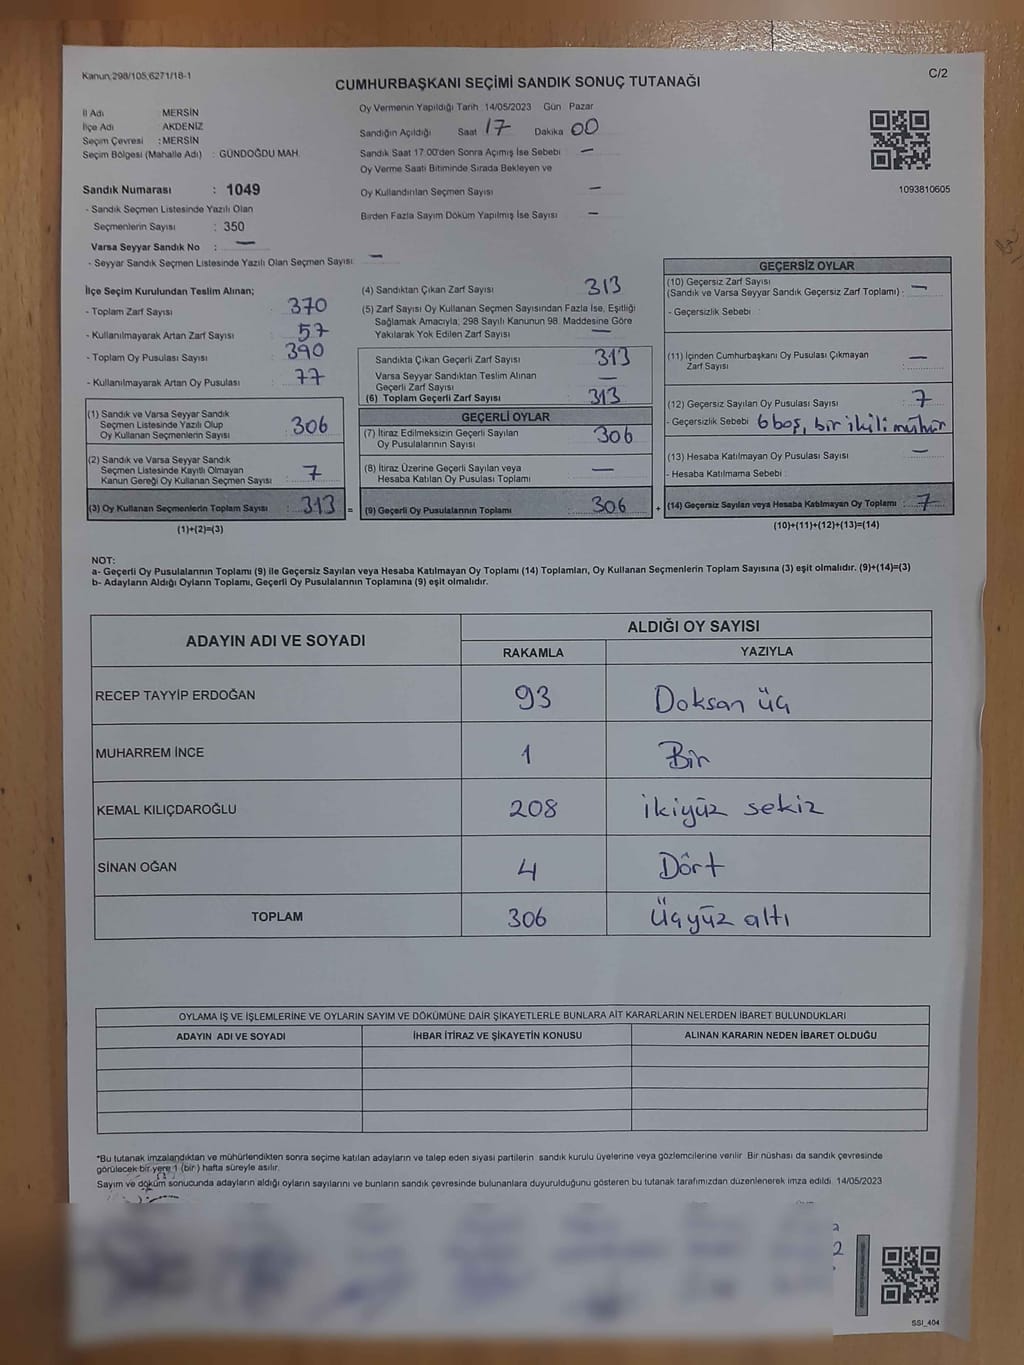 Kanun;298/105;6271/18-1
C/2
CUMHURBAŞKANI SEÇİMİ SANDIK SONUÇ TUTANAĞI
İl Adı MERSİN
İlçe Adı AKDENİZ
Seçim Çevresi : MERSİN
Seçim Bölgesi (Mahalle Adı) : GÜNDOĞDU MAH.
Sandık Numarası : 1049
- Sandık Seçmen Listesinde Yazılı Olan
Seçmenlerin Sayısı : 350
Varsa Seyyar Sandık No : —
- Seyyar Sandık Seçmen Listesinde Yazılı Olan Seçmen Sayısı: —
Oy Vermenin Yapıldığı Tarih 14/05/2023 Gün Pazar
Sandığın Açıldığı Saat 17 Dakika 00
Sandık Saat 17:00'den Sonra Açımış İse Sebebi —
Oy Verme Saati Bitiminde Sırada Bekleyen ve
Oy Kullandırılan Seçmen Sayısı —
Birden Fazla Sayım Döküm Yapılmış İse Sayısı —
1093810605
İlçe Seçim Kurulundan Teslim Alınan;
- Toplam Zarf Sayısı : 370
- Kullanılmayarak Artan Zarf Sayısı : 57
- Toplam Oy Pusulası Sayısı : 390
- Kullanılmayarak Artan Oy Pusulası : 77
(1) Sandık ve Varsa Seyyar Sandık
Seçmen Listesinde Yazılı Olup
Oy Kullanan Seçmenlerin Sayısı : 306
(2) Sandık ve Varsa Seyyar Sandık
Seçmen Listesinde Kayıtlı Olmayan
Kanun Gereği Oy Kullanan Seçmen Sayısı : 7
(3) Oy Kullanan Seçmenlerin Toplam Sayısı : 313 =
(1)+(2)=(3)
(4) Sandıktan Çıkan Zarf Sayısı 313
(5) Zarf Sayısı Oy Kullanan Seçmen Sayısından Fazla İse, Eşitliği
Sağlamak Amacıyla; 298 Sayılı Kanunun 98. Maddesine Göre
Yakılarak Yok Edilen Zarf Sayısı —
Sandıkta Çıkan Geçerli Zarf Sayısı 313
Varsa Seyyar Sandıktan Teslim Alınan
Geçerli Zarf Sayısı —
(6) Toplam Geçerli Zarf Sayısı 313
GEÇERLİ OYLAR
(7) İtiraz Edilmeksizin Geçerli Sayılan
Oy Pusulalarının Sayısı 306
(8) İtiraz Üzerine Geçerli Sayılan veya
Hesaba Katılan Oy Pusulası Toplamı —
(9) Geçerli Oy Pusulalarının Toplamı 306 +
GEÇERSİZ OYLAR
(10) Geçersiz Zarf Sayısı
(Sandık ve Varsa Seyyar Sandık Geçersiz Zarf Toplamı) : —
- Geçersizlik Sebebi :
(11) İçinden Cumhurbaşkanı Oy Pusulası Çıkmayan
Zarf Sayısı : —
(12) Geçersiz Sayılan Oy Pusulası Sayısı : 7
- Geçersizlik Sebebi 6 boş, bir ikili mühür
(13) Hesaba Katılmayan Oy Pusulası Sayısı : —
- Hesaba Katılmama Sebebi :
(14) Geçersiz Sayılan veya Hesaba Katılmayan Oy Toplamı : 7
(10)+(11)+(12)+(13)=(14)
NOT:
a- Geçerli Oy Pusulalarının Toplamı (9) ile Geçersiz Sayılan veya Hesaba Katılmayan Oy Toplamı (14) Toplamları, Oy Kullanan Seçmenlerin Toplam Sayısına (3) eşit olmalıdır. (9)+(14)=(3)
b- Adayların Aldığı Oyların Toplamı, Geçerli Oy Pusulalarının Toplamına (9) eşit olmalıdır.
ADAYIN ADI VE SOYADI ALDIĞI OY SAYISI
RAKAMLA YAZIYLA
RECEP TAYYİP ERDOĞAN 93 Doksan üç
MUHARREM İNCE 1 Bir
KEMAL KILIÇDAROĞLU 208 ikiyüz sekiz
SİNAN OĞAN 4 Dört
TOPLAM 306 Üçyüz altı
OYLAMA İŞ VE İŞLEMLERİNE VE OYLARIN SAYIM VE DÖKÜMÜNE DAİR ŞİKAYETLERLE BUNLARA AİT KARARLARIN NELERDEN İBARET BULUNDUKLARI
ADAYIN ADI VE SOYADI İHBAR İTİRAZ VE ŞİKAYETİN KONUSU ALINAN KARARIN NEDEN İBARET OLDUĞU
*Bu tutanak imzalandıktan ve mühürlendikten sonra seçime katılan adayların ve talep eden siyasi partilerin sandık kurulu üyelerine veya gözlemcilerine verilir. Bir nüshası da sandık çevresinde
görülecek bir yere 1 (bir) hafta süreyle asılır.
Sayım ve döküm sonucunda adayların aldığı oyların sayılarını ve bunların sandık çevresinde bulunanlara duyurulduğunu gösteren bu tutanak tarafımızdan düzenlenerek imza edildi. 14/05/2023
SSI_404